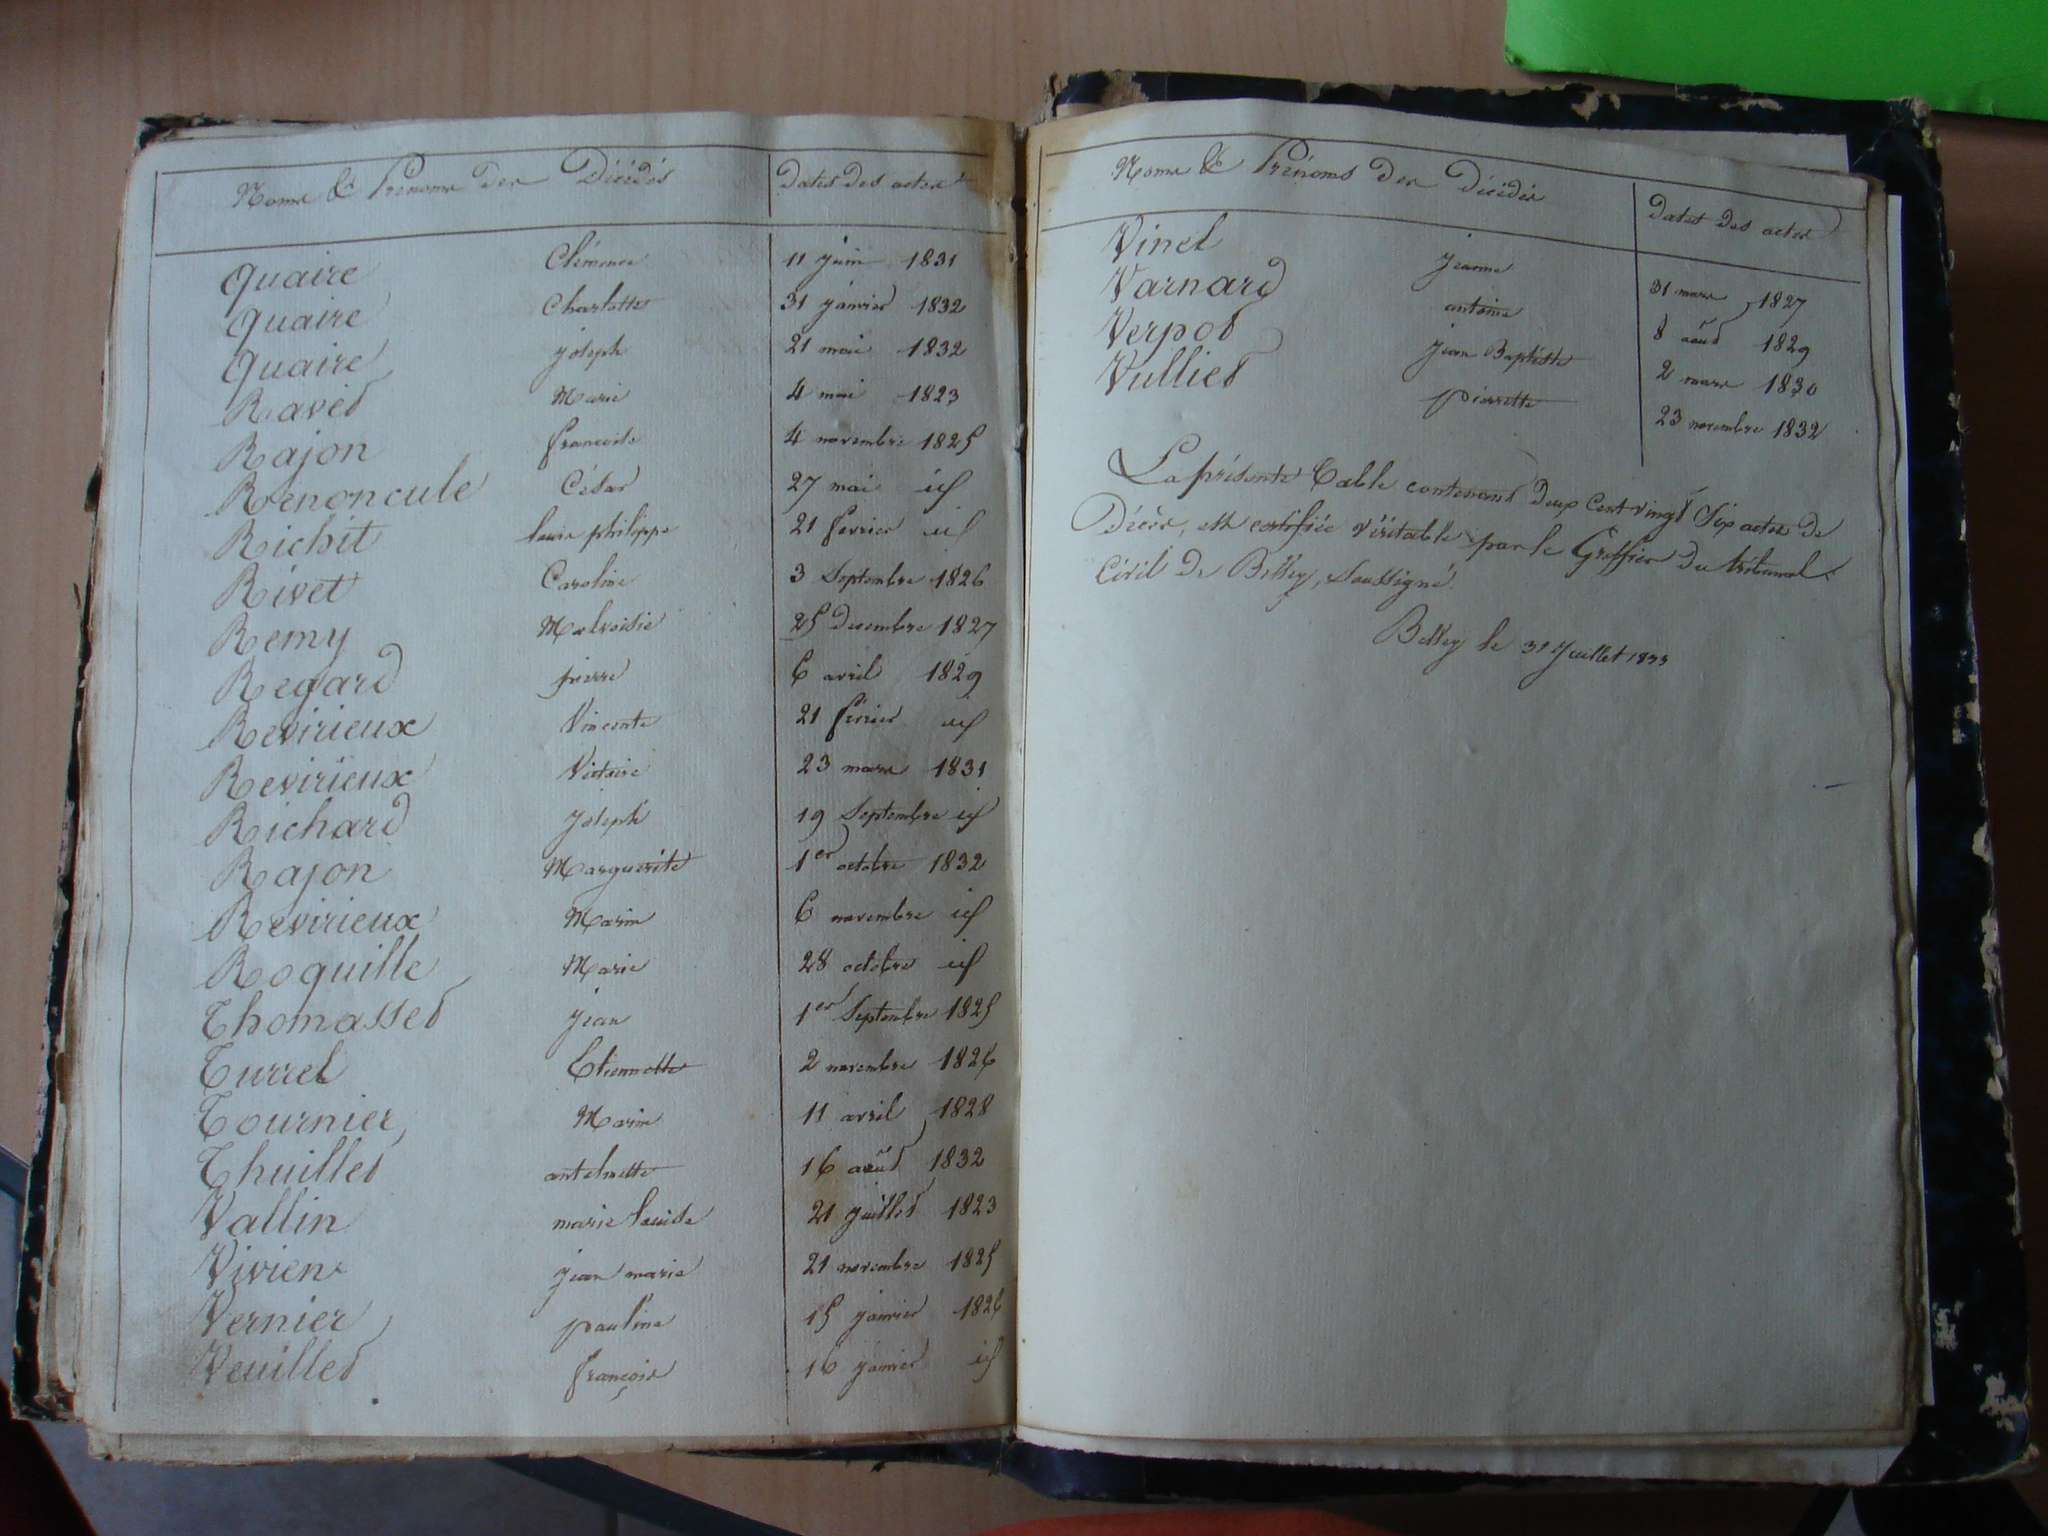 Noms & Prénoms des Décédés Dates des actes
Quaire Clémence 11 juin 1831
Quaire Charlotte 31 janvier 1832
Quaire joseph 21 mai 1832
Raved Marie 4 mai 1823
Rajon françoise 4 novembre 1825
Renoncule César 27 mai id
Richit louis philippe 21 fevrier id
Rivet Caroline 3 Septembre 1826
Remy 25 decembre 1827
Regard pierre 6 avril 1829
Revirieux Vincente 21 février id
Revirieux Victoire 23 mars 1831
Richard joseph 19 Septembre id
Rajon Marguerite 1er octobre 1832
Revirieux Marin 6 novembre id
Roquille Marie 28 octobre id
Thomassed jean 1er Septembre 1825
Turrel Etiennette 2 novembre 1826
Tournier Marin 11 avril 1828
Thuilled antelmette 16 aoûd 1832
Vallin marie louise 21 juilled 1823
Vivien jean marie 21 novembre 1825
Vernier pauline 15 janvier 1826
Veuilled françois 16 janvier id
Noms & Prénoms des Décédés Dates des actes
Vinel jeanne 31 mars 1827
Varnard antoine 8 aoûd 1829
Verpod jean Baptiste 2 mars 1830
Vullied pierrette 23 novembre 1832
La présente Table contenant deux Cent vingt Six actes de
Décès, est certifiée véritable par le Greffier du tribunal
Civil de Belley, Soussigné.
Belley le 31 Juillet 1833